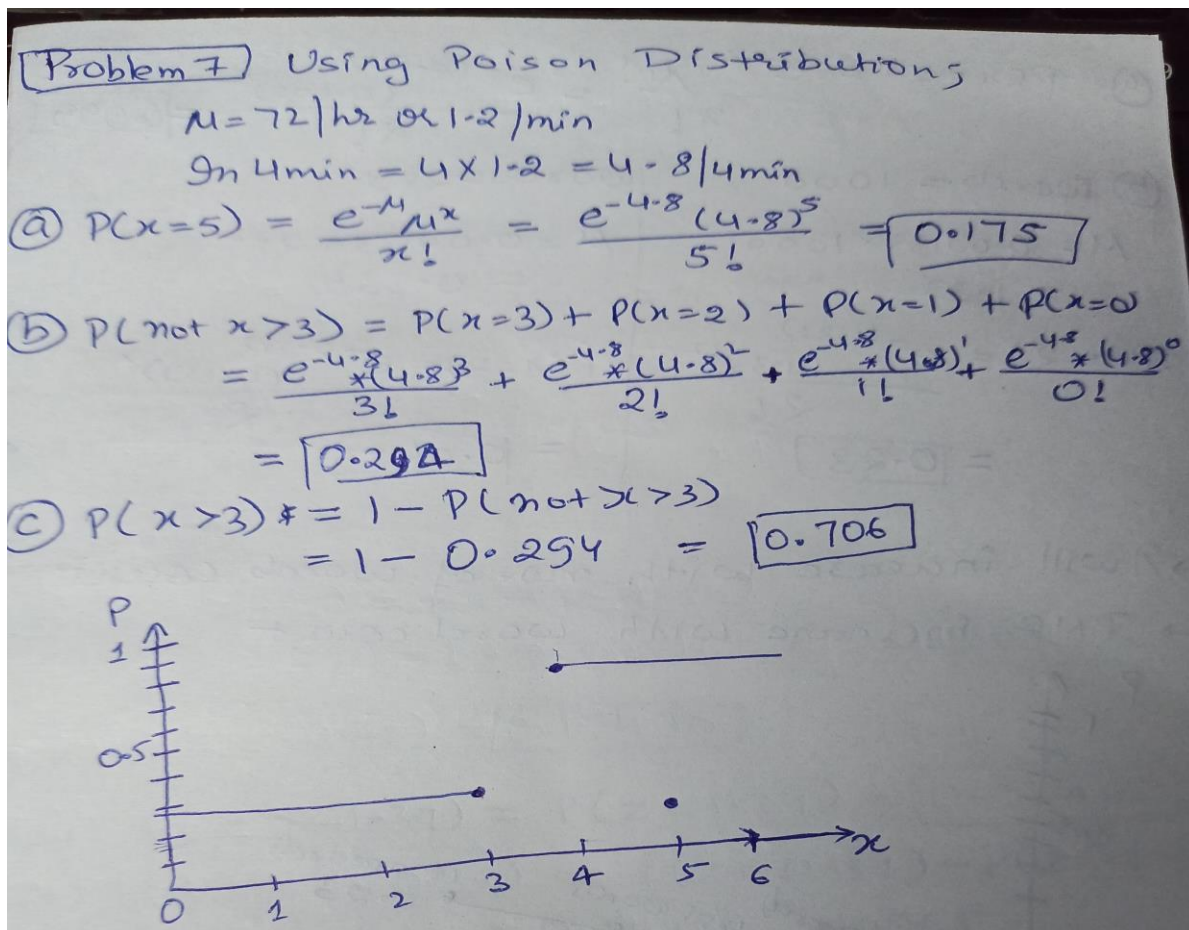 Problem 7 Using Poison Distribution;
μ = 72/hr or 1.2/min
In 4min = 4 x 1.2 = 4.8/4min
(a) P(x=5) = e^-μ μ^x / x! = e^-4.8 (4.8)^5 / 5! = 0.175
(b) P(not x>3) = P(x=3) + P(x=2) + P(x=1) + P(x=0)
= e^-4.8 * (4.8)^3 / 3! + e^-4.8 * (4.8)^2 / 2! + e^-4.8 * (4.8)^1 / 1! + e^-4.8 * (4.8)^0 / 0!
= 0.294
(c) P(x>3) = 1 - P(not x>3)
= 1 - 0.294 = 0.706
P
1
0.5
x
0 1 2 3 4 5 6